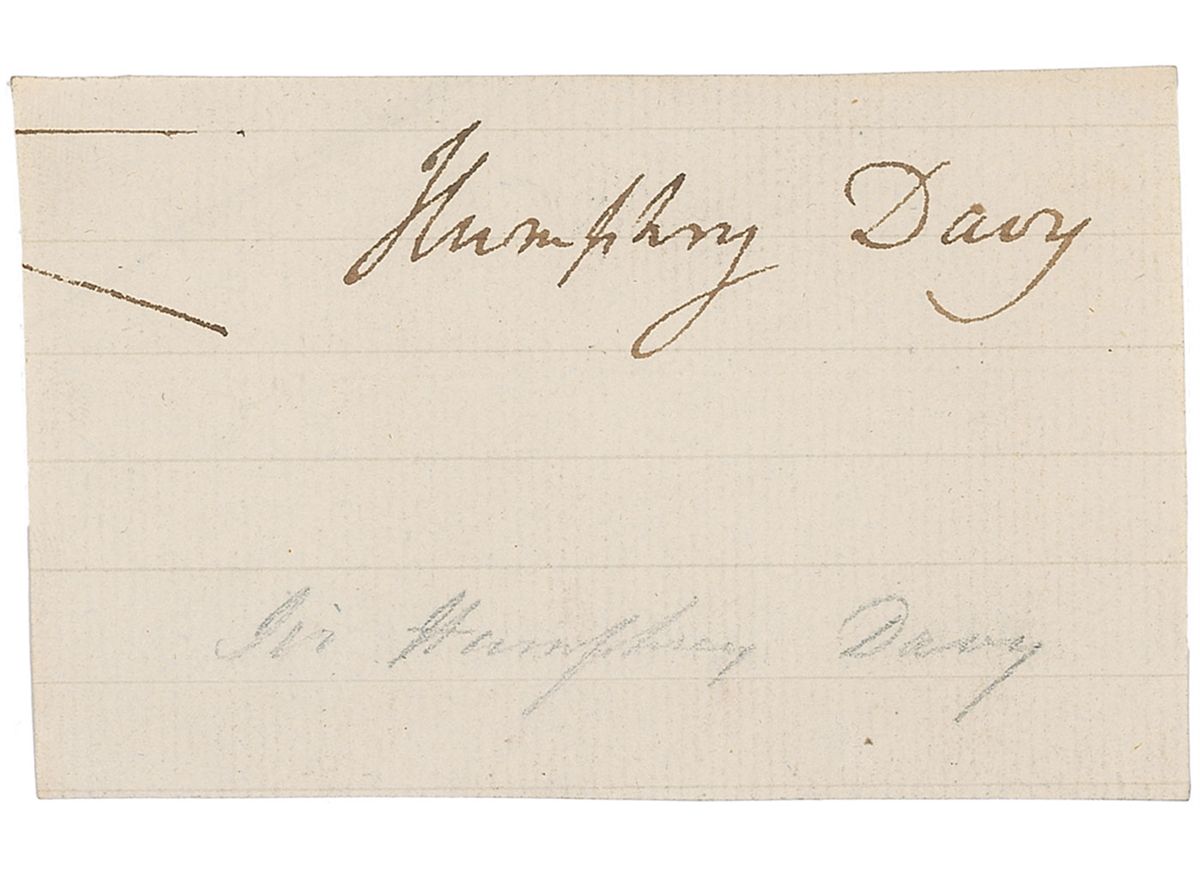 Humphry Davy
Sir Humphrey Davy